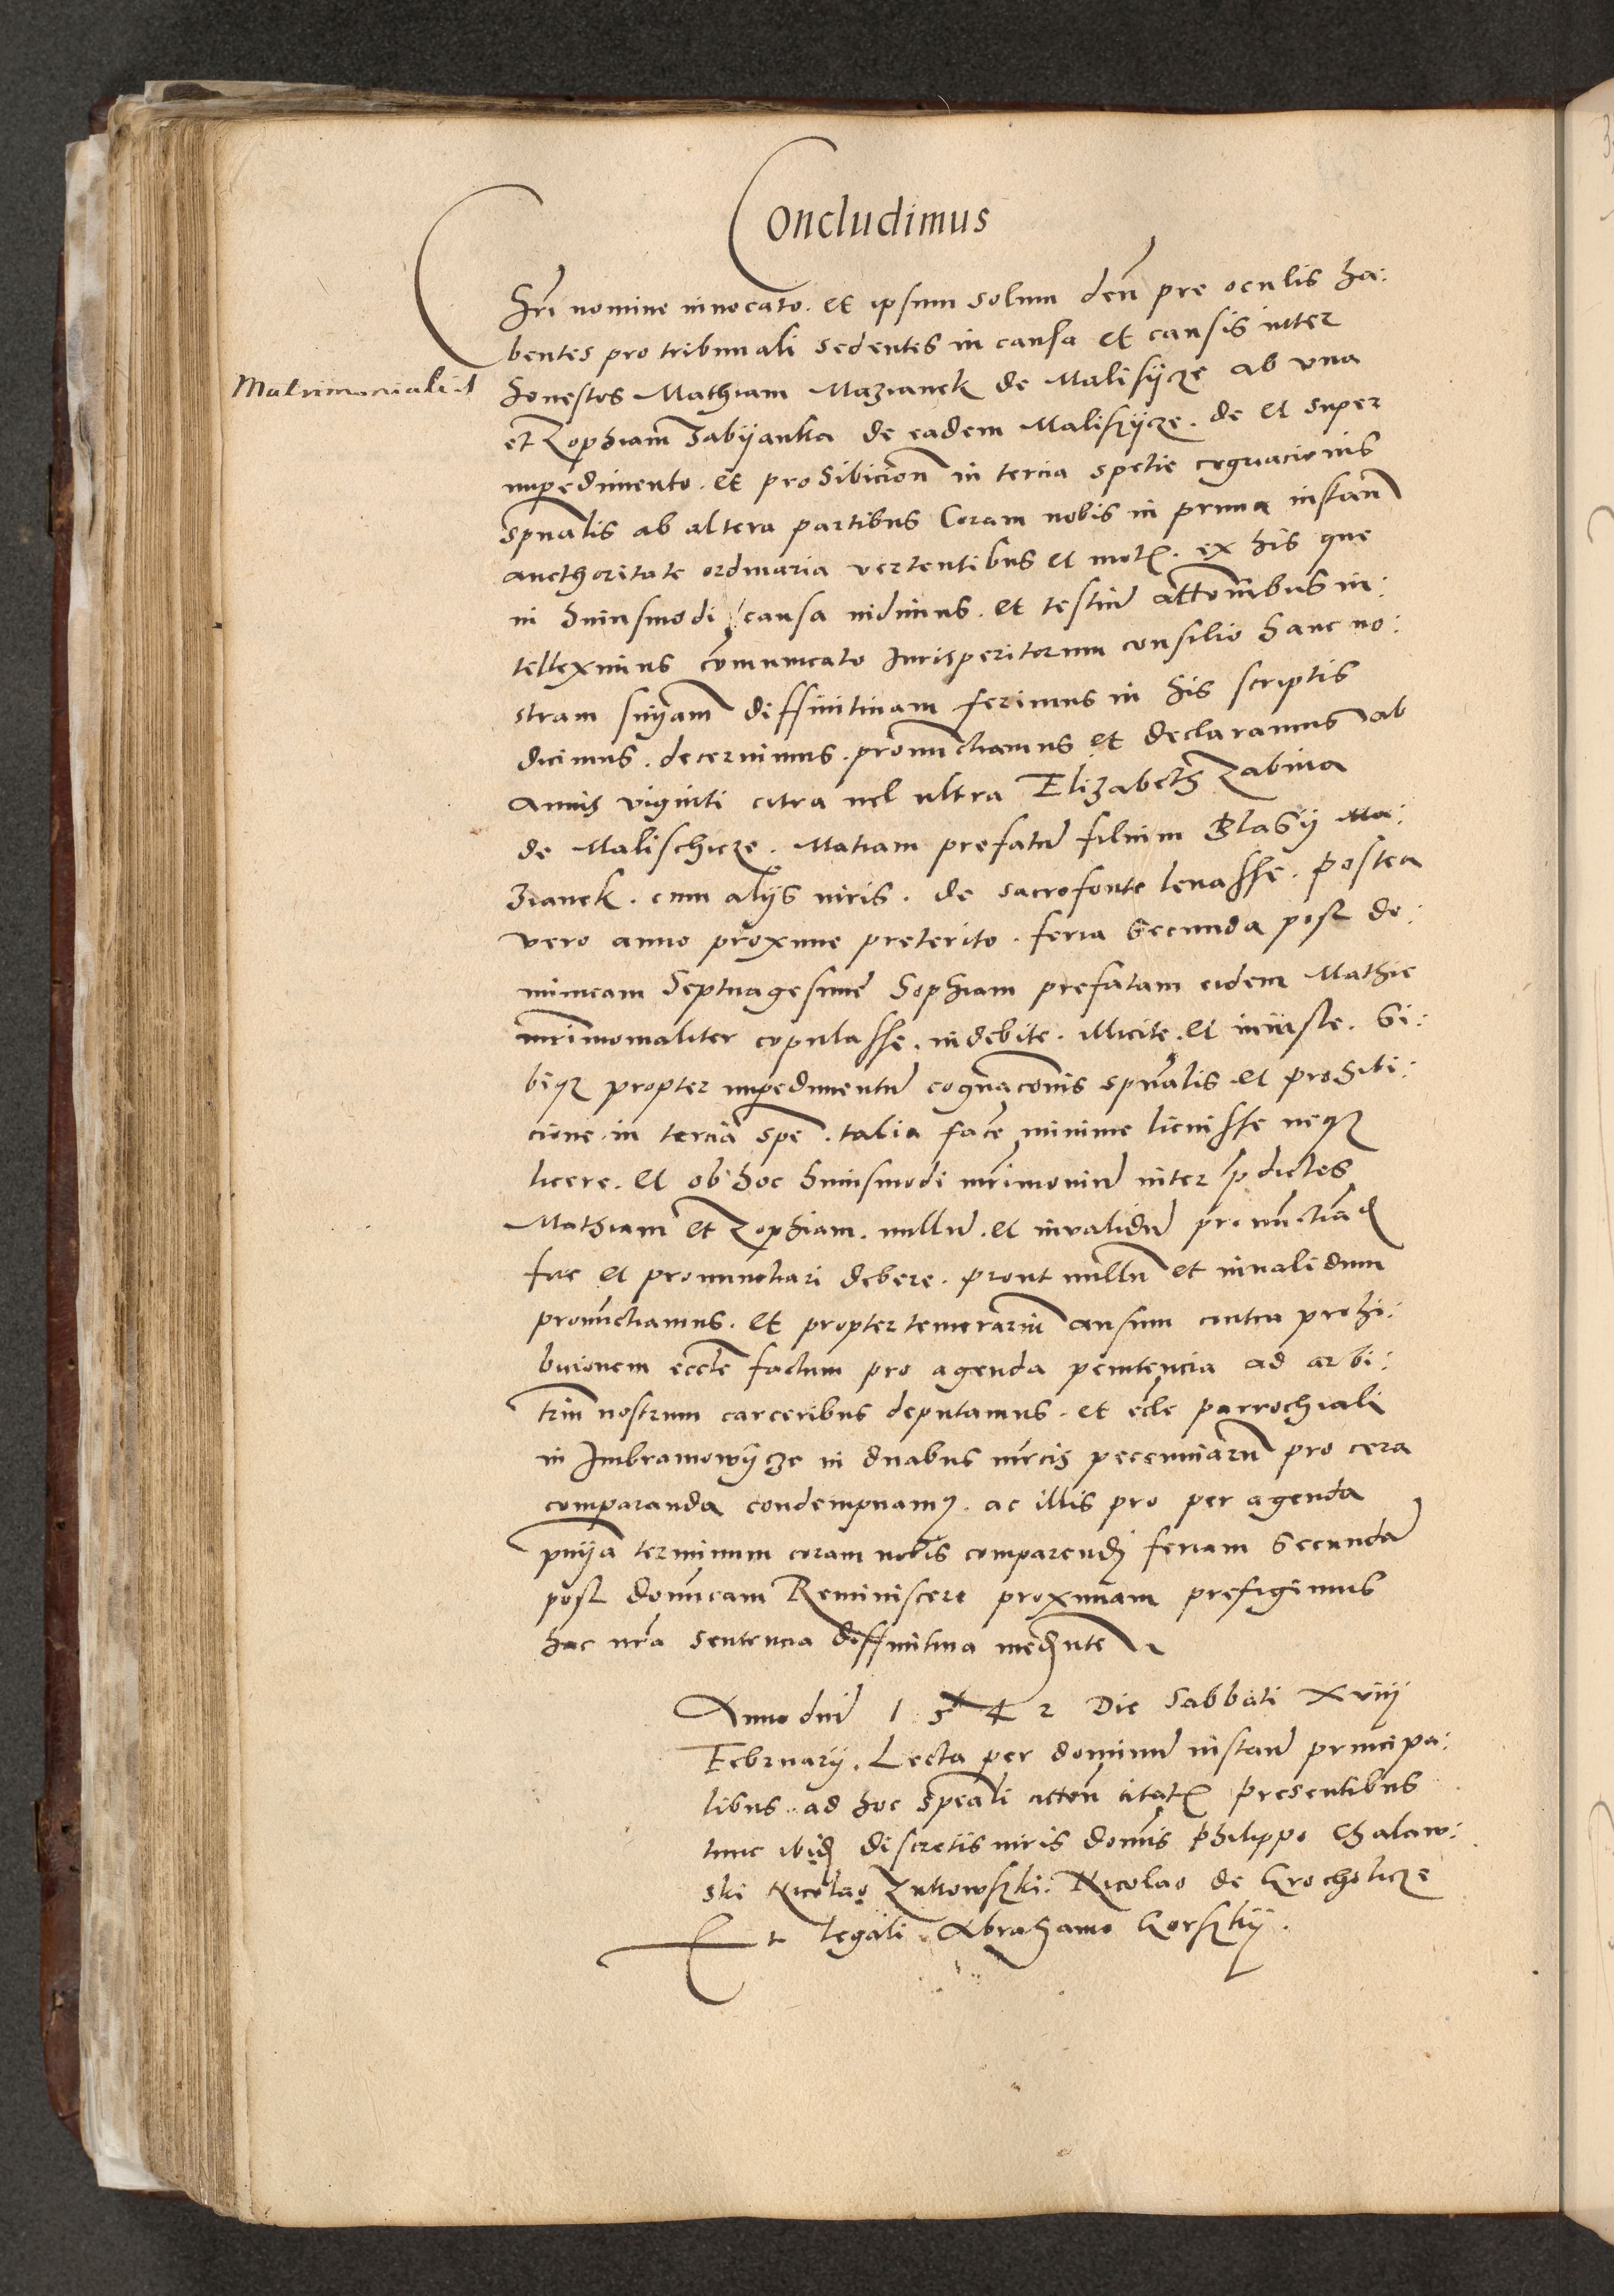 Concludimus
Chri nomine invocato. et ipsum solum deu pre oculis ha:
bentes pro tribunali sedentes in causa et causis inter
Matrimonialis
honestos Mathiam Mazianek de Malisÿcze ab una
et Zophiam Zabÿanka de eadem Maliszÿcze. de et super
impedimento. et prohibicion in tercia spetie cognacionis
spualis ab altera partibus Coram nobis in prima instan
aucthoritate ordinaria vertentibus et mot. ex his que
in huiusmodi causa vidimus. et testiu attonibus in:
telleximus comunicato Jurisperitorum consilio hanc no:
stram snÿam diffinitivam ferimus in his scriptis
dicimus. decernimus. pronunctiamus et declaramus ab
annis viginti citra vel ultra Elizabeth Zabina
de Malischicze. Matiam prefatu filium Blasÿ Ma:
zianek. cum alÿs viris. de sacrofonte levasse. postea
vero anno proxime preterito. feria secunda post do:
minicam Septuagesime Sophiam prefatam eidem Mathie
mrimonialiter copulasse. indebite. illicite. et iniuste. si:
biqz propter impedimentu cognaconis spualis et prohibi:
cione in tercia spe. talia face minime licuisse neqz
licere. et ob hoc huiusmodi mrimoniu inter pdictos
Mathiam et Zophiam. nullu. et invalidu pronunctiad
fore et pronunctiari debere. prout nullu et invalidum
pronuctiamus. et propter temerariu ausum contra prohi:
bicionem eccle factum pro agenda penitencia ad arbi:
triu nostrum carceribus deputamus. et ecle parrochiali
in Jmbramowÿcze in duabus mrcis pecuniaru pro cera
comparanda condempnam9. ac illis pro per agenda
pniÿa terminum coram nobis comparendi feriam secunda
post domicam Reminiscere proximam prefigimus
hac nra sentencia diffinitiva mediante
Anno dni 1542 Die Sabbati XVIII
Februarÿ. Lecta per dominu instan principa:
libus. ad hoc speali citat presentibus
tunc ibid discretis viris domis Philippo Chalaw:
ski Nicolao Zukowski. Nicolao de Grocholicze
Et legali Abrahamo Gorskÿ.